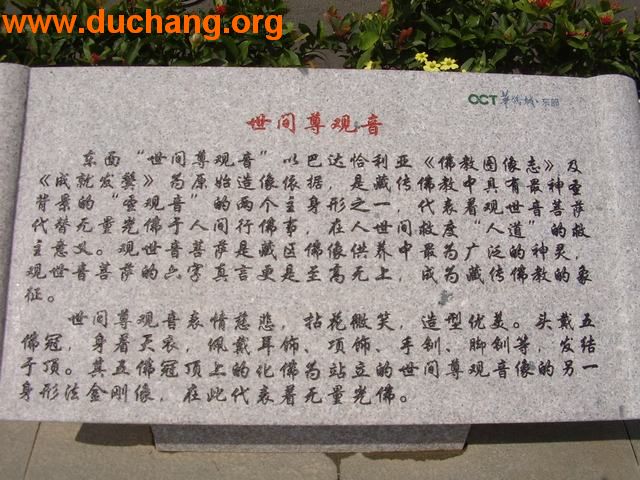 www.duchang.org
OCT 华侨城·东部
世间尊观音
东面“世间尊观音”以巴达恰利亚《佛教图像志》及
《成就发鬘》为原始造像依据，是藏传佛教中具有最神圣
背景的“圣观音”的两个主身形之一，代表着观世音菩萨
代替无量光佛于人间行佛事，在人世间救度“人道”的救
主意义。观世音菩萨是藏区佛像供养中最为广泛的神灵，
观世音菩萨的六字真言更是至高无上，成为藏传佛教的象
征。
世间尊观音表情慈悲，拈花微笑，造型优美。头戴五
佛冠，身着天衣，佩戴耳饰、项饰、手钏、脚钏等，发结
于顶。其五佛冠顶上的化佛为站立的世间尊观音像的另一
身形法金刚像，在此代表着无量光佛。